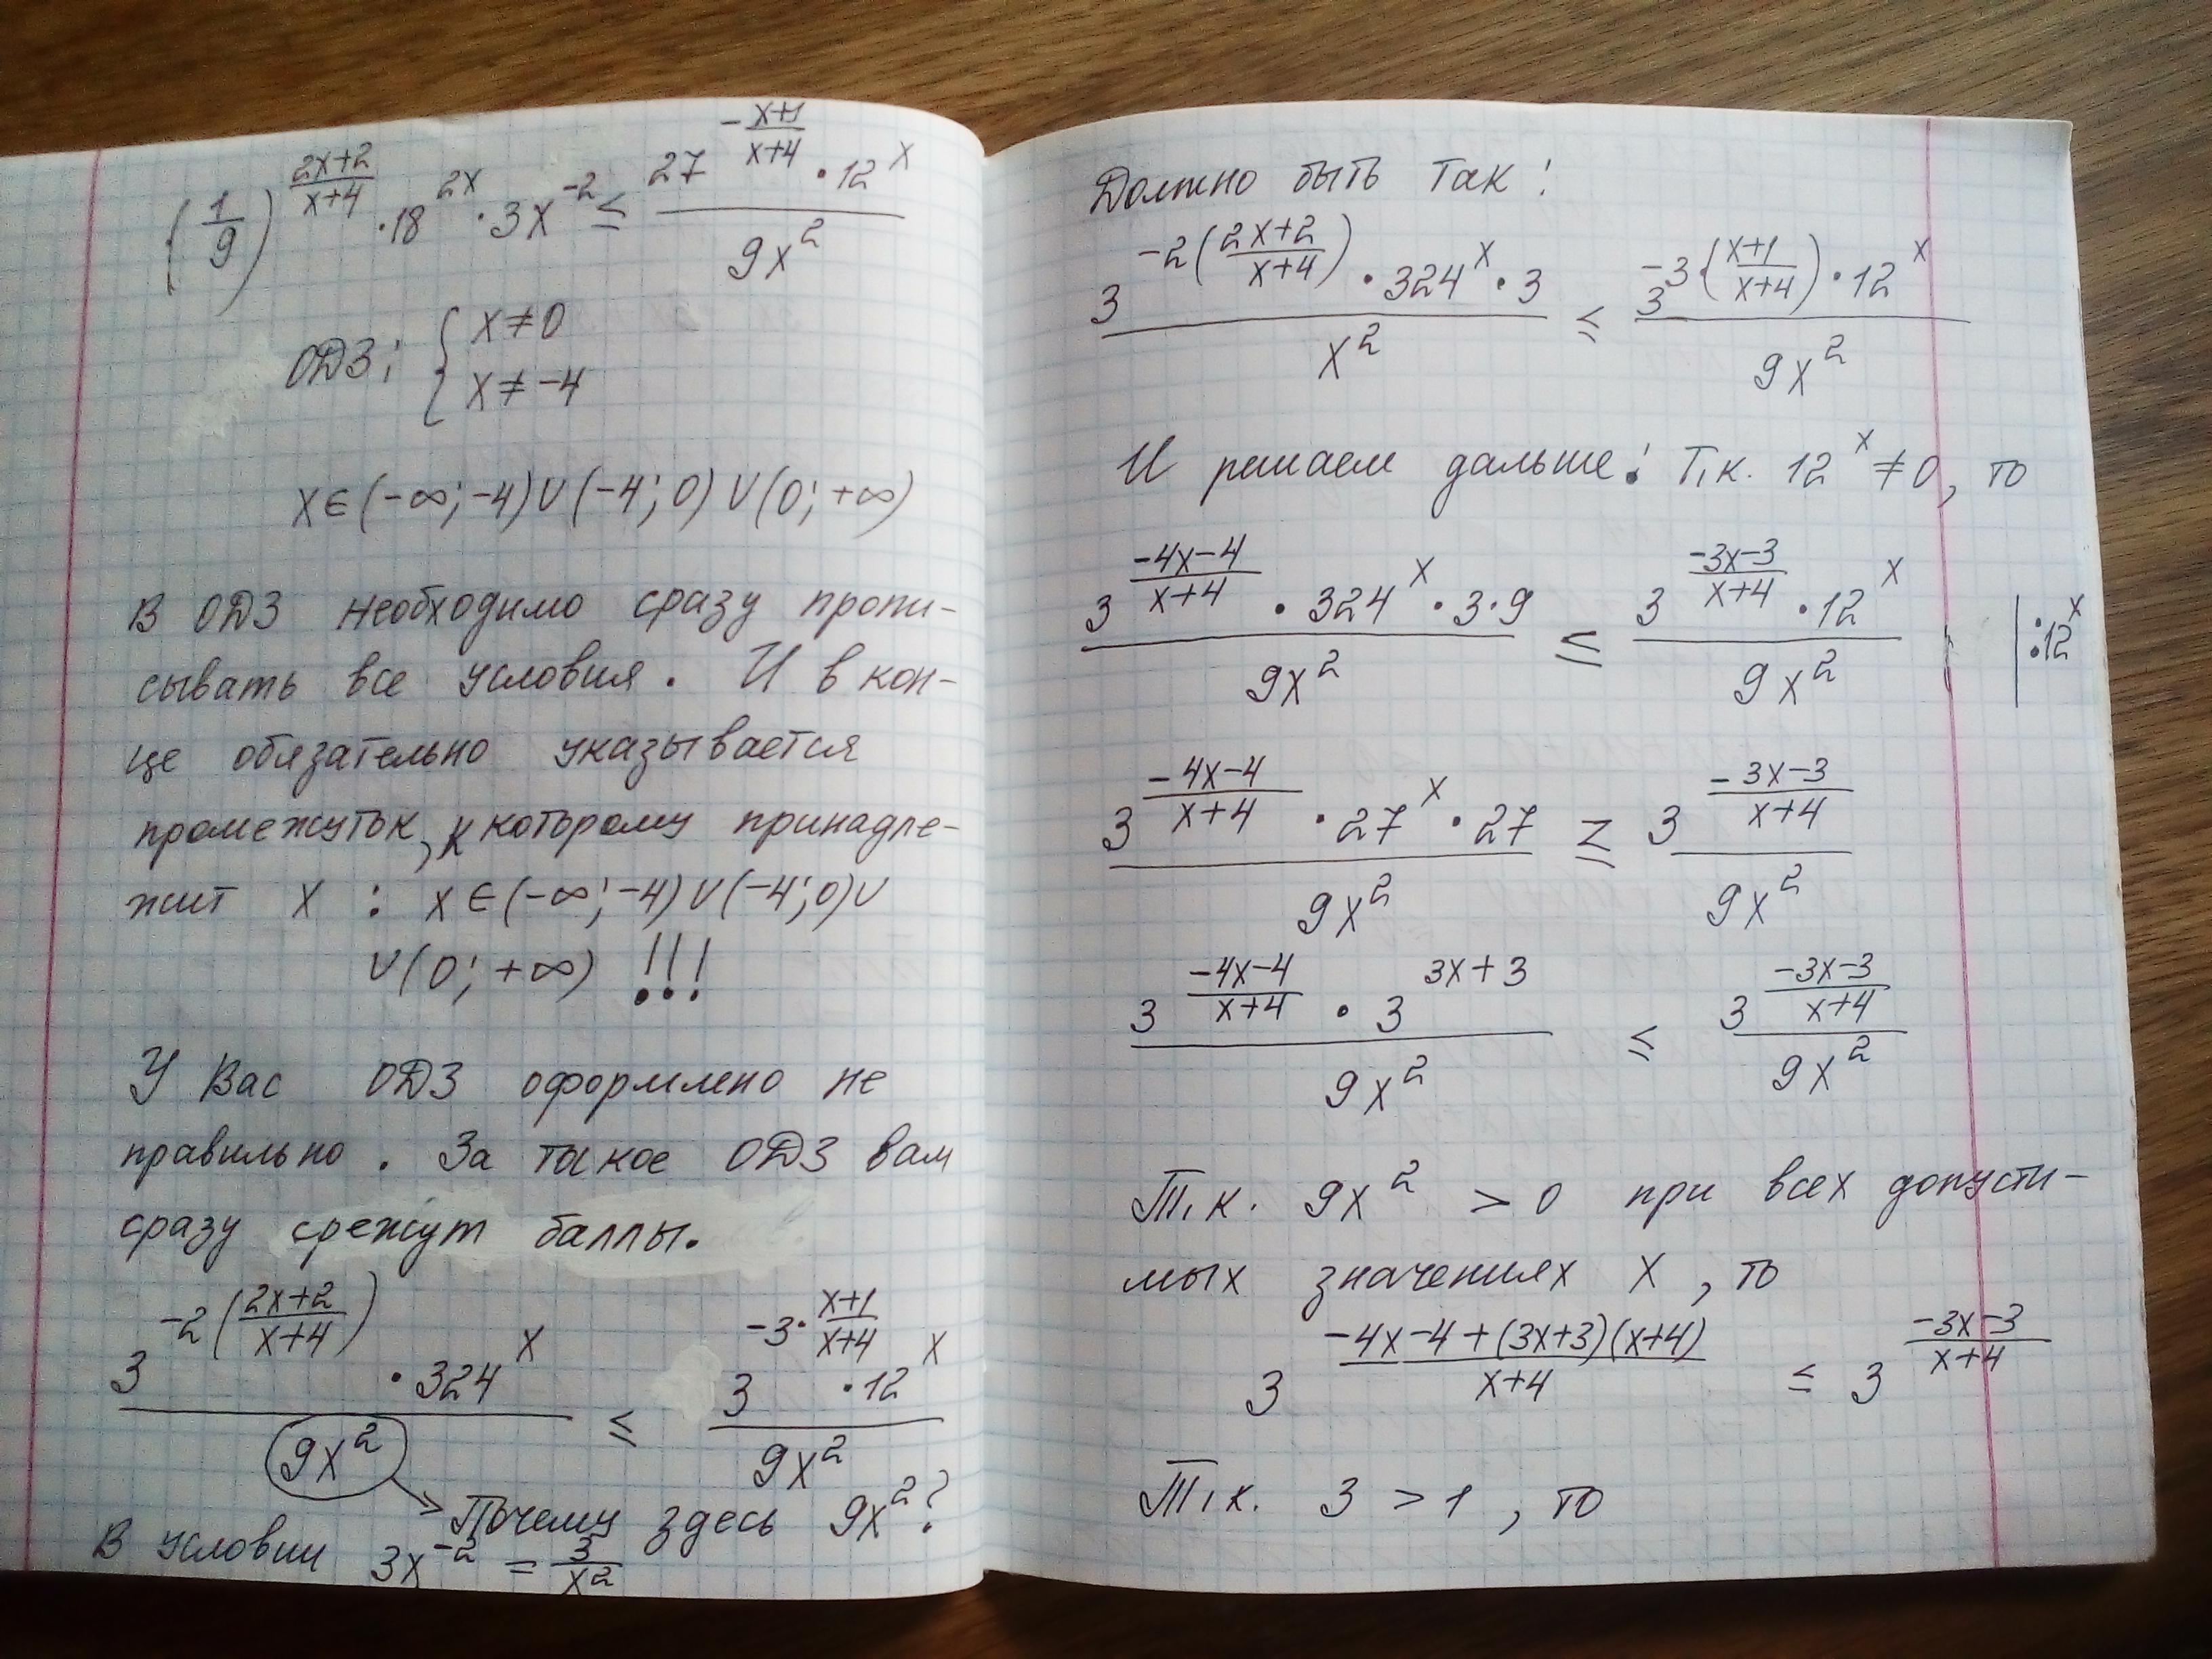 (1/9)^((2x+2)/(x+4)) · 18^(2x) · 3x^(-2) ≤ (27^(-(x+1)/(x+4)) · 12^x)/(9x²)
ОДЗ: { x≠0
x≠-4
x∈(-∞;-4)∪(-4;0)∪(0;+∞)
В ОДЗ необходимо сразу пропи-
сывать все условия. И в кон-
це обязательно указывается
промежуток, к которому принадле-
жит x : x∈(-∞;-4)∪(-4;0)∪
∪(0;+∞) !!!
У Вас ОДЗ оформлено не
правильно. За такое ОДЗ вам
сразу срежут баллы.
(3^(-2((2x+2)/(x+4))) · 324^x)/(9x²) ≤ (3^(-3·(x+1)/(x+4)) · 12^x)/(9x²)
Почему здесь 9x²?
В условии 3x^(-2) = 3/x²
Должно быть так:
(3^(-2((2x+2)/(x+4))) · 324^x · 3)/(x²) ≤ (3^(-3·((x+1)/(x+4))) · 12^x)/(9x²)
И решаем дальше: Т.к. 12^x ≠ 0, то
(3^((-4x-4)/(x+4)) · 324^x · 3·9)/(9x²) ≤ (3^((-3x-3)/(x+4)) · 12^x)/(9x²) | :12^x
(3^((-4x-4)/(x+4)) · 27^x · 27)/(9x²) ≤ (3^((-3x-3)/(x+4)))/(9x²)
(3^((-4x-4)/(x+4)) · 3^(3x+3))/(9x²) ≤ (3^((-3x-3)/(x+4)))/(9x²)
Т.к. 9x² > 0 при всех допусти-
мых значениях x, то
3^((-4x-4+(3x+3)(x+4))/(x+4)) ≤ 3^((-3x-3)/(x+4))
Т.к. 3 > 1, то